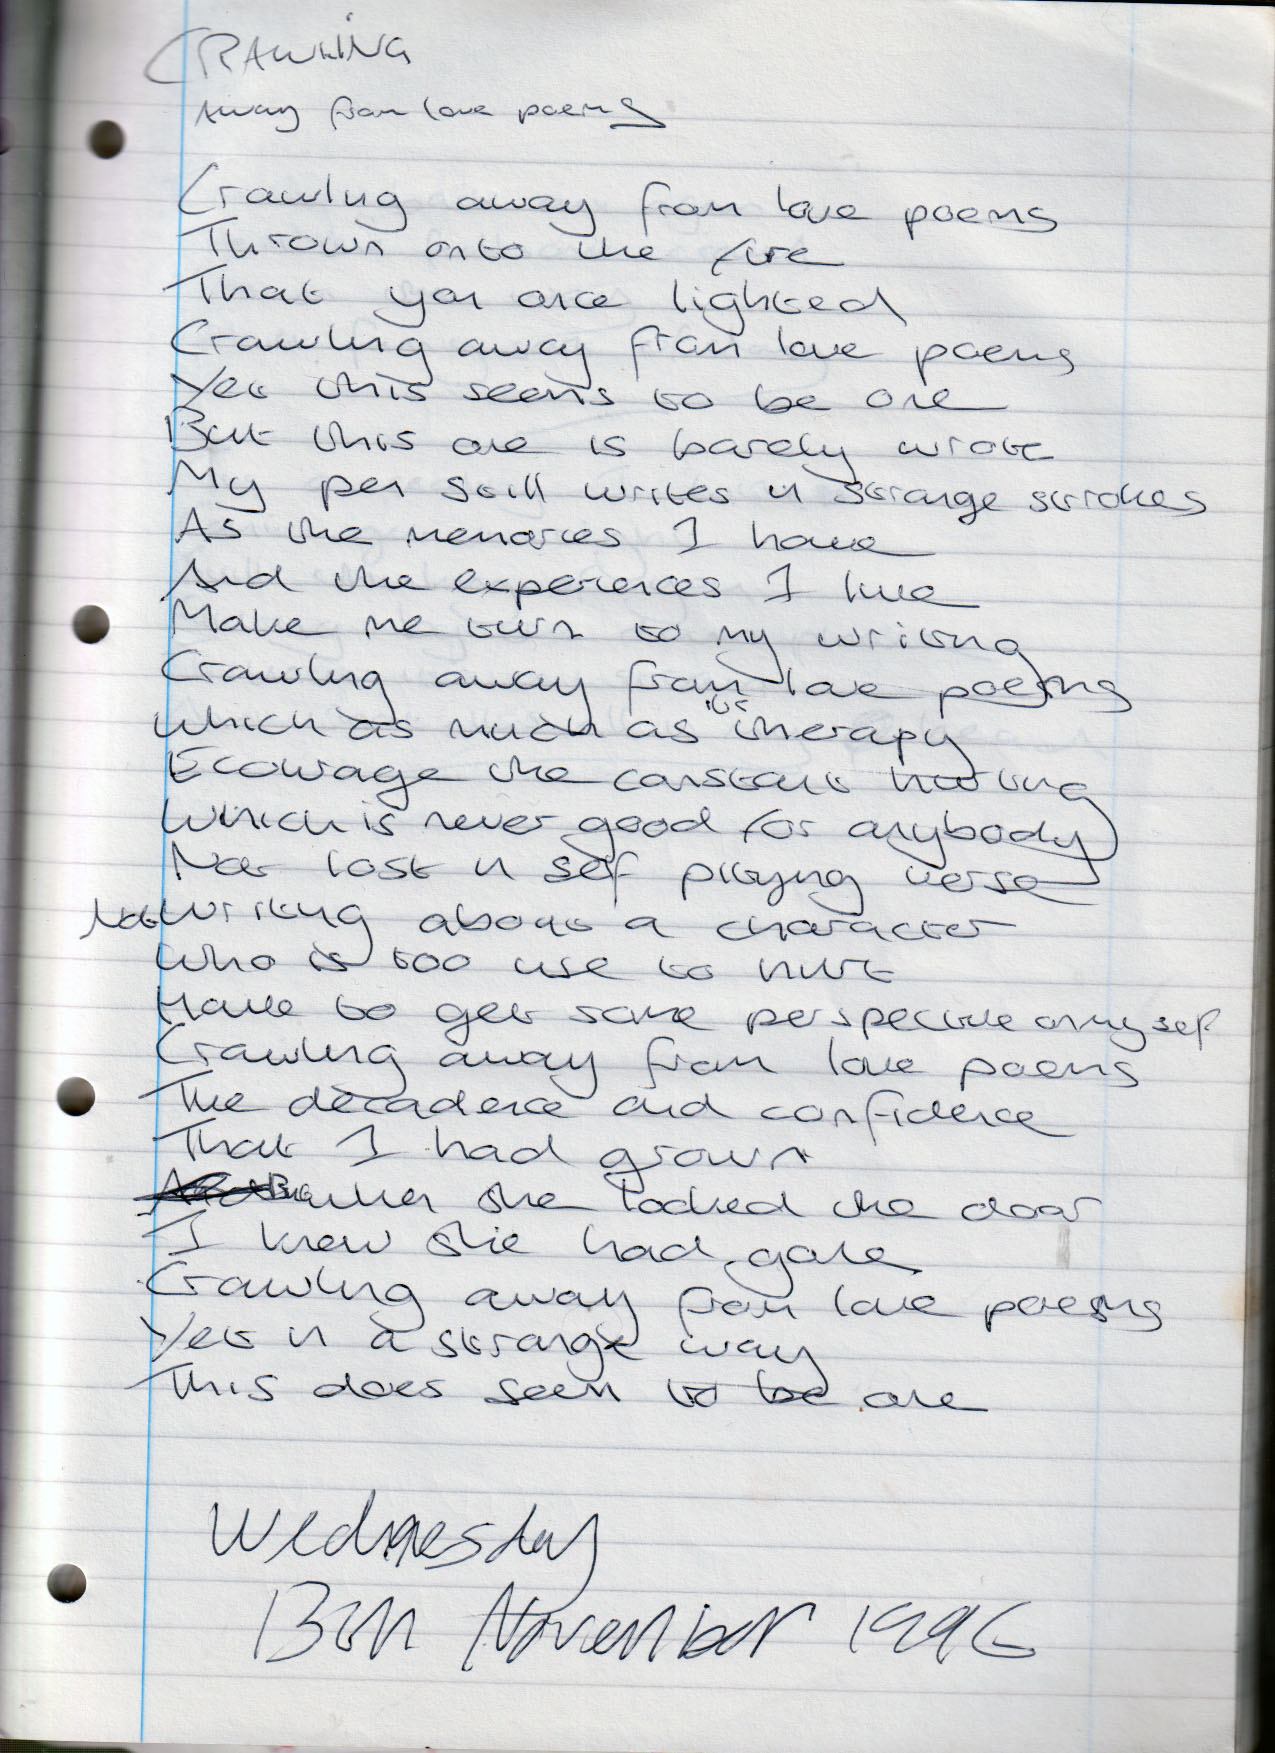 CRAWLING
Away from love poems
Crawling away from love poems
Thrown onto the fire
That you once lighted
Crawling away from love poems
Yet this seems to be one
But this one is barely wrote
My pen still writes in strange strokes
As the memories I have
And the experences I live
Make me turn to my writing
Crawling away from love poems
Which as much as its therapy
Ecourage the constant hurting
Which is never good for anybody
Not lost in self pitying verse
Not writing about a character
Who is too use to hurt
Have to get some perspective on my self
Crawling away from love poems
The decadence and confidence
That I had grown
when she locked the door
I knew she had gone
Crawling away from love poems
Yet in a strange way
This does seem to be one
Wednesday
13th November 1996